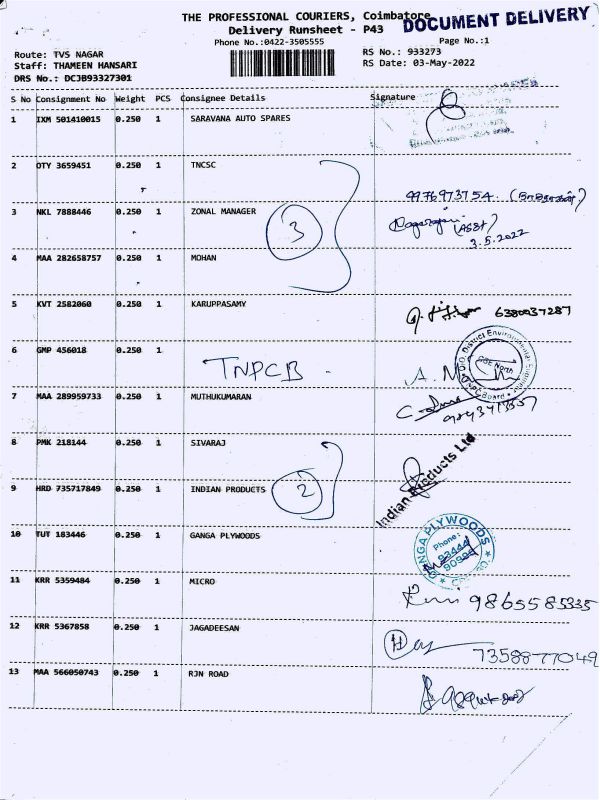 THE PROFESSIONAL COURIERS, Coimbatore
DOCUMENT DELIVERY
Delivery Runsheet - P43
Phone No.:0422-3505555
Page No.:1
Route: TVS NAGAR
RS No.: 933273
Staff: THAMEEN HANSARI
RS Date: 03-May-2022
DRS No.: DCJB93327301
S No Consignment No Weight PCS Consignee Details Signature
1 IXM 501410015 0.250 1 SARAVANA AUTO SPARES
2 OTY 3659451 0.250 1 TNCSC
9976973754
3 NKL 7888446 0.250 1 ZONAL MANAGER
3
Nagarajan
(ASST)
3.5.2022
4 MAA 282658757 0.250 1 MOHAN
5 KVT 2582060 0.250 1 KARUPPASAMY
6380037287
6 GMP 456018 0.250 1
TNPCB
District Environmental Engineer
CBE North
TNPC Board
7 MAA 289959733 0.250 1 MUTHUKUMARAN
8 PMK 218144 0.250 1 SIVARAJ
9 HRD 735717849 0.250 1 INDIAN PRODUCTS
2
Indian Products Ltd
10 TUT 183446 0.250 1 GANGA PLYWOODS
GANGA PLYWOODS
Phone:
93444
11 KRR 5359484 0.250 1 MICRO
9865585335
12 KRR 5367858 0.250 1 JAGADEESAN
7358877049
13 MAA 566050743 0.250 1 RJN ROAD